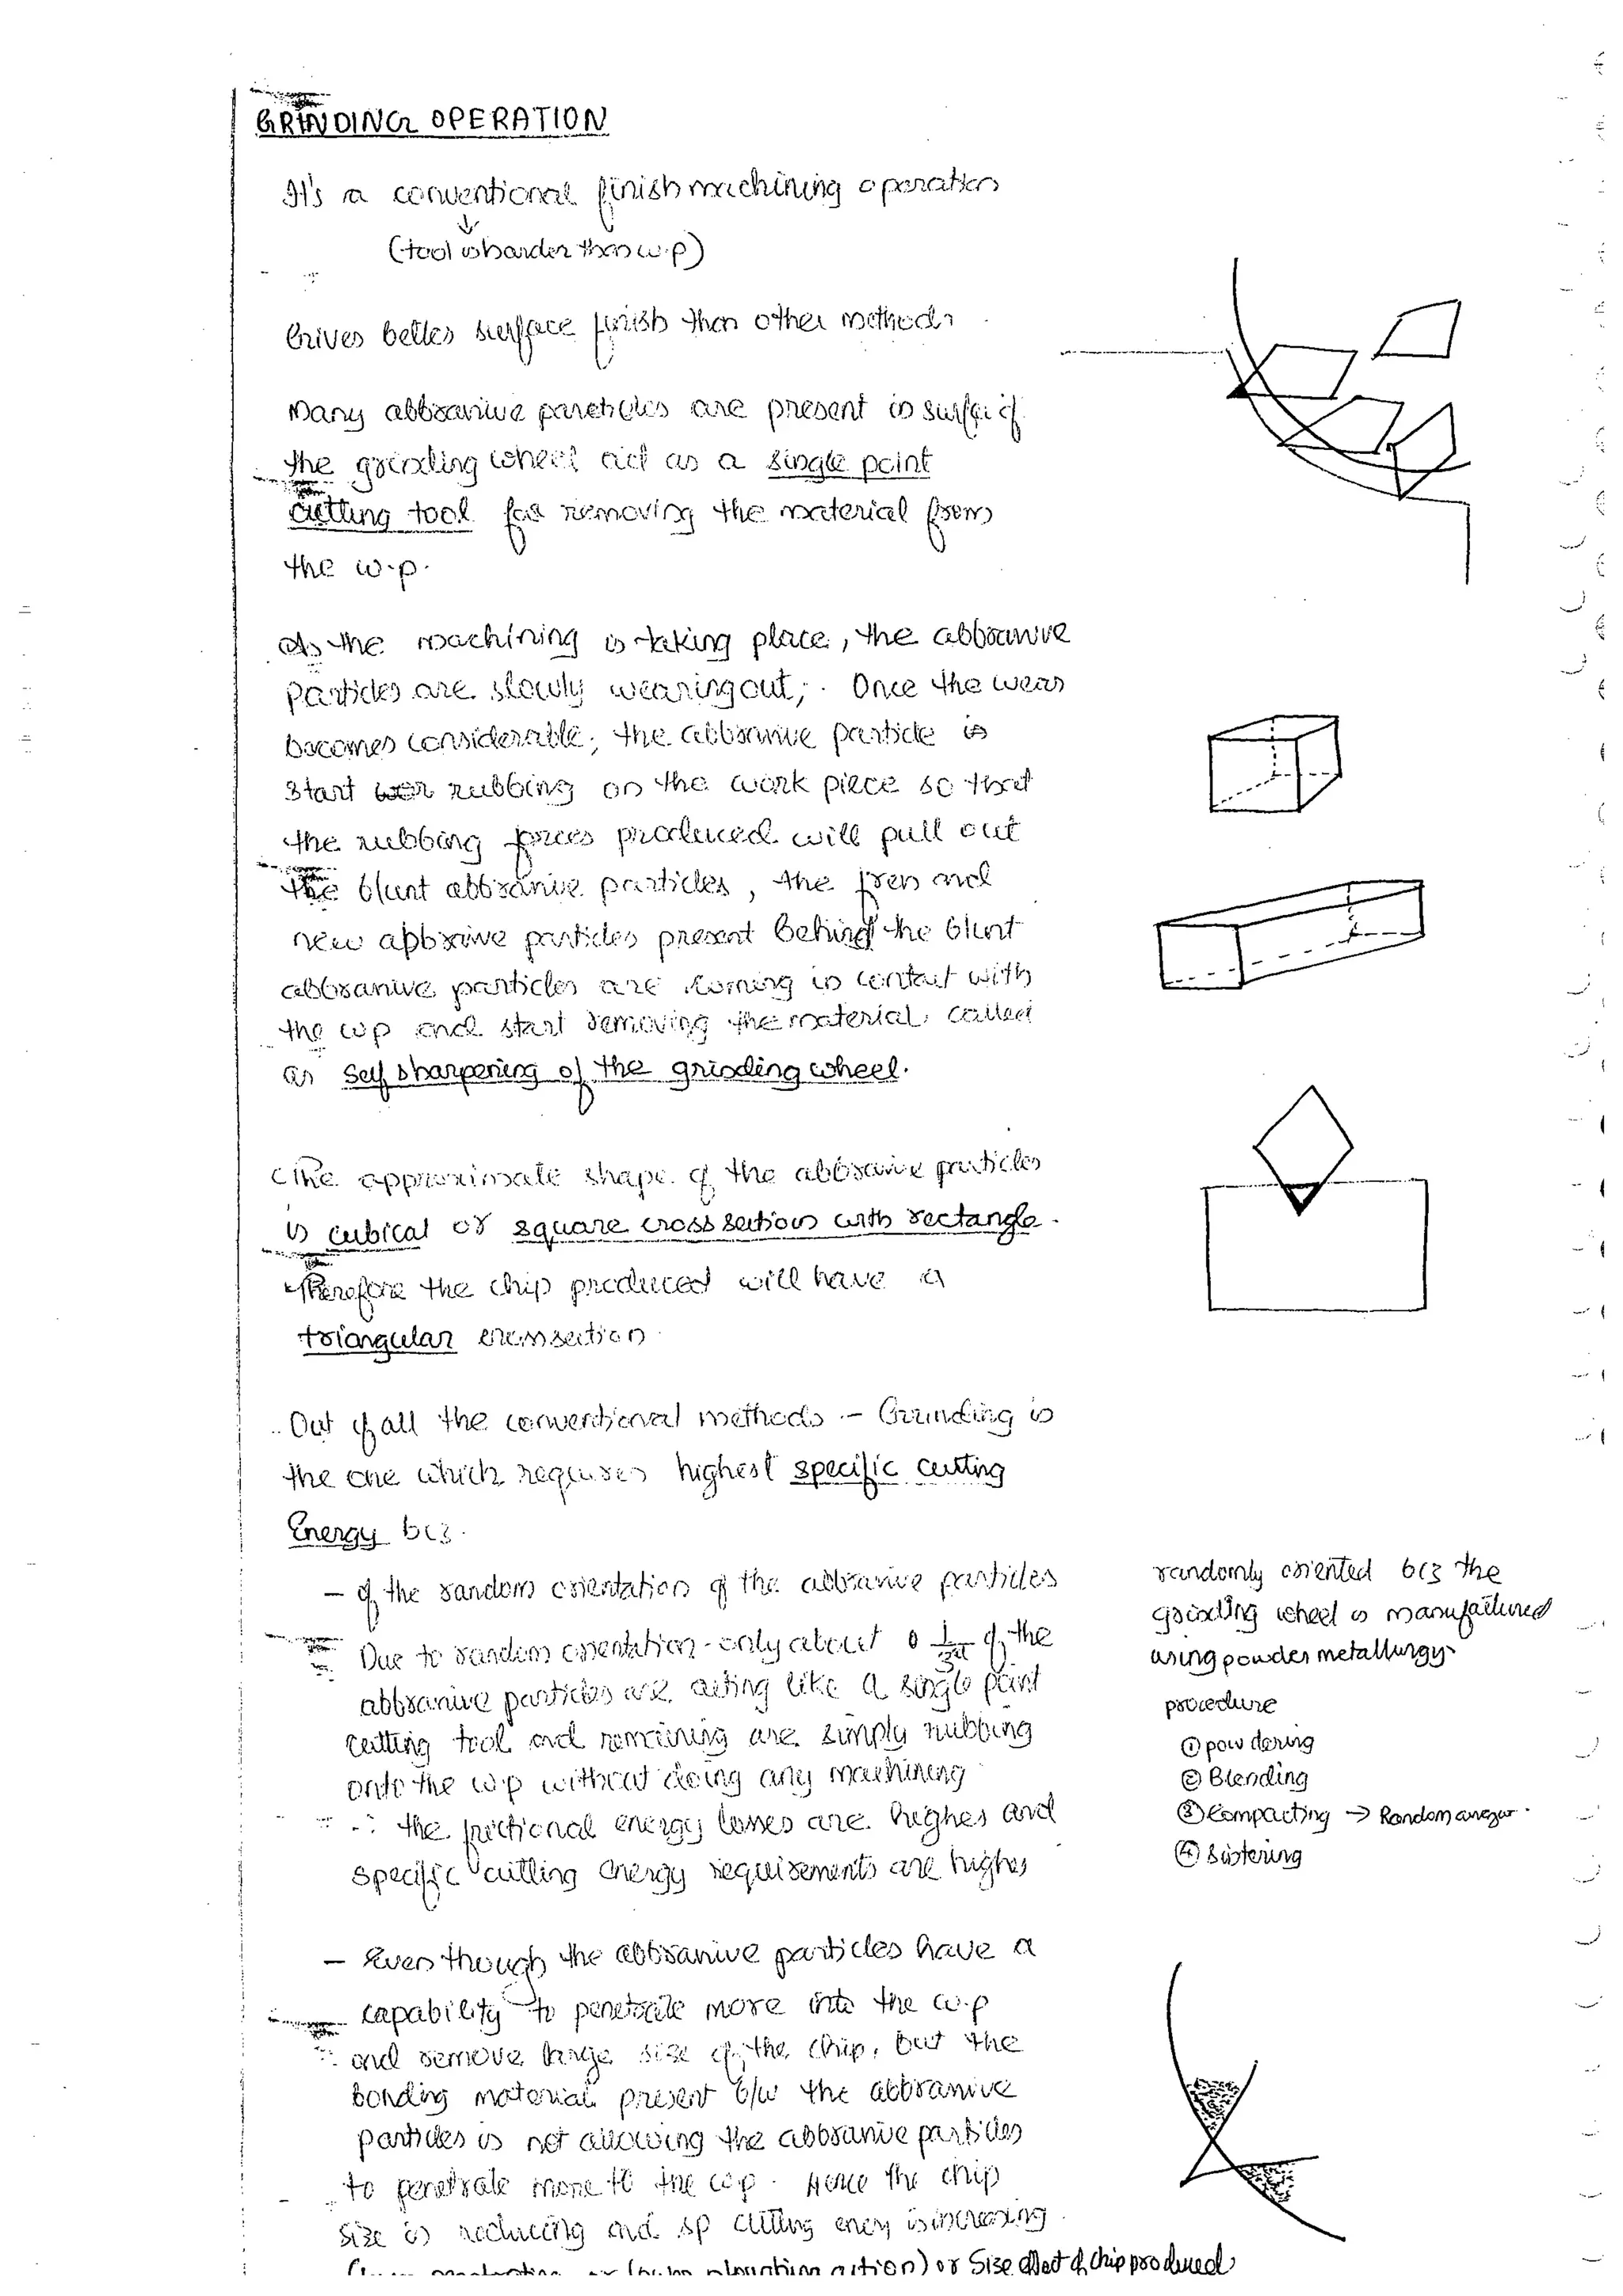 GRINDING OPERATION
It's a conventional finish machining operation
(tool is harder than w.p)
Gives better surface finish than other methods
Many abbrasive particles are present in surf. of
the grinding wheel act as a single point
cutting tool for removing the material from
the w.p.
As the machining is taking place, the abbrasive
particles are slowly wearing out; . Once the wear
becomes considerable; the abbrasive particle is
start rubbing on the work piece so that
the rubbing forces produced will pull out
the blunt abbrasive particles, the fresh and
new abbrasive particles present behind the blunt
abbrasive particles are coming in contact with
the wp and start removing the material, called
as self sharpening of the grinding wheel.
The approximate shape of the abbrasive particles
is cubical or square cross section with rectangle.
Therefore the chip produced will have a
triangular cross section
Out of all the conventional methods - Grinding is
the one which requires highest specific cutting
Energy bcz.
- of the random orientation of the abbrasive particles
Due to random orientation - only about of the
abbrasive particles are acting like a single point
cutting tool and remaining are simply rubbing
onto the wp without doing any machining
∴ the frictional energy losses are higher and
specific cutting energy requirements are higher
randomly oriented bcz the
grinding wheel is manufactured
using powder metallurgy.
procedure
① powdering
② Blending
③ Compacting → Random
④ Sintering
- Even though the abbrasive particles have a
capability to penetrate more into the w.p
and remove large size of the chip, but the
bonding material present b/w the abbrasive
particles is not allowing the abbrasive particles
to penetrate more to the w.p. Hence the chip
size is reducing and sp cutting energy is increasing
action) or Size effect of chip produced